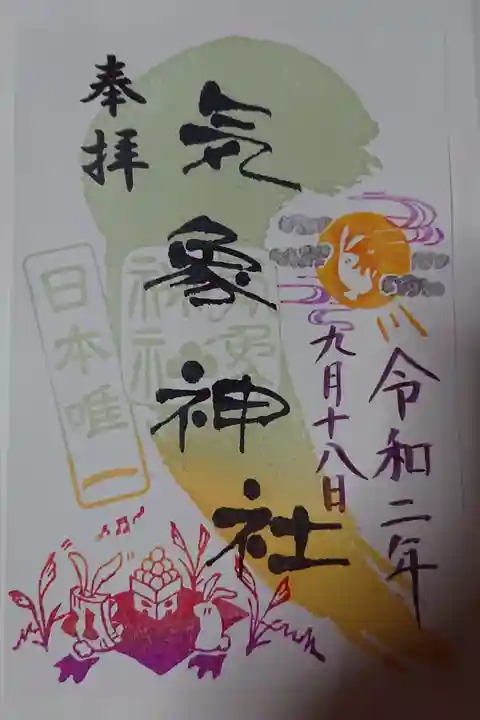 奉拝
気象神社
日本唯一
令和二年
九月十八日